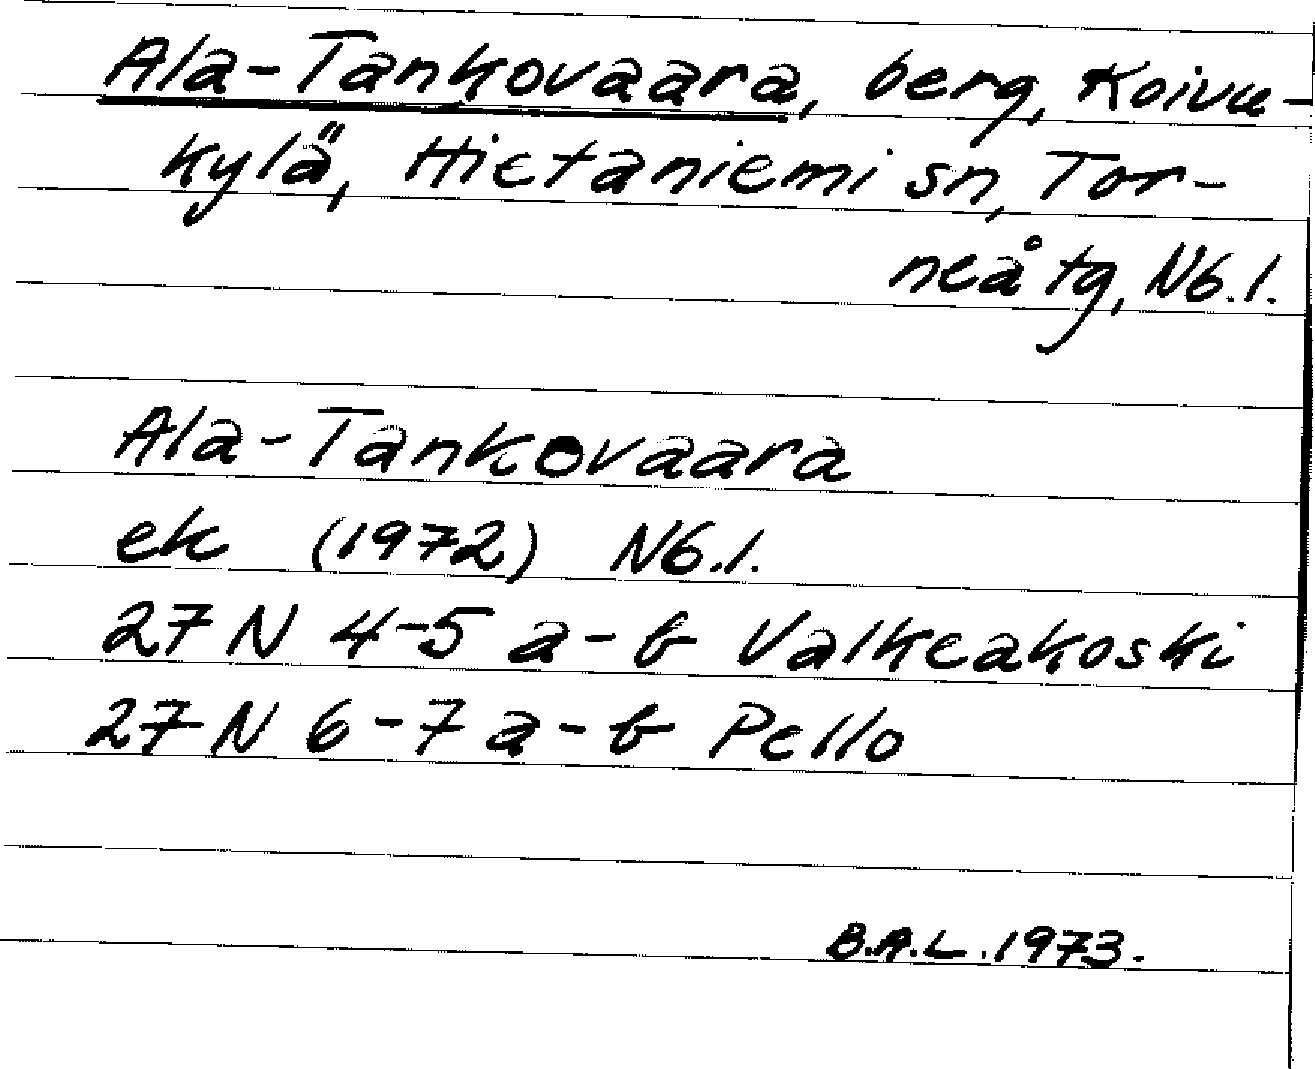 Ala-Tankovaara, berg, Koivu-
kylä, Hietaniemi sn, Tor-
neå tg, Nb.l.
Ala-Tankovaara
ek (1972) Nb.l.
27 N 4-5 a-b Valkeakoski
27 N 6-7 a-b Pello
B.A.L. 1973.